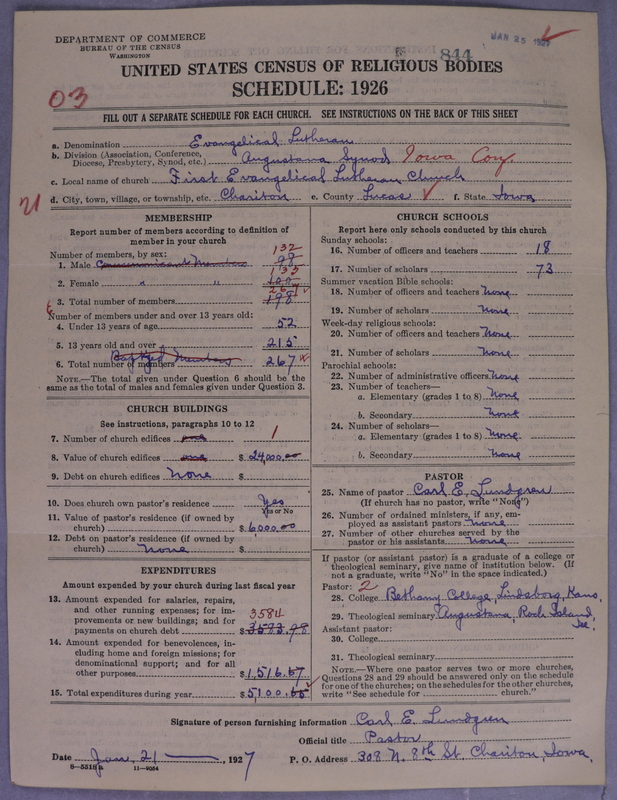 DEPARTMENT OF COMMERCE
BUREAU OF THE CENSUS
WASHINGTON
844
JAN 25 1927
UNITED STATES CENSUS OF RELIGIOUS BODIES
SCHEDULE: 1926
03
FILL OUT A SEPARATE SCHEDULE FOR EACH CHURCH. SEE INSTRUCTIONS ON THE BACK OF THIS SHEET
a. Denomination Evangelical Lutheran
b. Division (Association, Conference, Diocese, Presbytery, Synod, etc.) Augustana Synod Iowa Conf.
c. Local name of church First Evangelical Lutheran Church
21
d. City, town, village, or township, etc. Chariton e. County Lucas f. State Iowa
MEMBERSHIP
Report number of members according to definition of
member in your church
Number of members, by sex: 132
1. Male Communicant Members 98
133
2. Female " " 100
267
3. Total number of members 198
Number of members under and over 13 years old:
4. Under 13 years of age 52
5. 13 years old and over 215
Baptized Members
6. Total number of members 267
NOTE.—The total given under Question 6 should be the
same as the total of males and females given under Question 3.
CHURCH BUILDINGS
See instructions, paragraphs 10 to 12
7. Number of church edifices one 1
8. Value of church edifices one $ 24,000.00
9. Debt on church edifices None $
10. Does church own pastor's residence Yes
Yes or No
11. Value of pastor's residence (if owned by
church) $ 6000.00
12. Debt on pastor's residence (if owned by
church) None $
EXPENDITURES
Amount expended by your church during last fiscal year
13. Amount expended for salaries, repairs,
and other running expenses; for im-
provements or new buildings; and for 3584
payments on church debt $ 3583.98
14. Amount expended for benevolences, in-
cluding home and foreign missions; for
denominational support; and for all
other purposes $ 1,516.67
15. Total expenditures during year $ 5100.65
CHURCH SCHOOLS
Report here only schools conducted by this church
Sunday schools:
16. Number of officers and teachers 18
17. Number of scholars 73
Summer vacation Bible schools:
18. Number of officers and teachers None
19. Number of scholars None
Week-day religious schools:
20. Number of officers and teachers None
21. Number of scholars None
Parochial schools:
22. Number of administrative officers None
23. Number of teachers—
a. Elementary (grades 1 to 8) None
b. Secondary None
24. Number of scholars—
a. Elementary (grades 1 to 8) None
b. Secondary None
PASTOR
25. Name of pastor Carl E. Lundgren
(If church has no pastor, write "None")
26. Number of ordained ministers, if any, em-
ployed as assistant pastors None
27. Number of other churches served by the
pastor or his assistants None
If pastor (or assistant pastor) is a graduate of a college or
theological seminary, give name of institution below. (If
not a graduate, write "No" in the space indicated.)
Pastor: 2
28. College Bethany College, Lindsborg, Kans.
29. Theological seminary Augustana, Rock Island, Ill.
Assistant pastor:
30. College
31. Theological seminary
NOTE.—Where one pastor serves two or more churches,
Questions 28 and 29 should be answered only on the schedule
for one of the churches; on the schedules for the other churches,
write "See schedule for church."
Signature of person furnishing information Carl E. Lundgren
Official title Pastor
Date Jan. 21, 1927 P. O. Address 308 N. 8th St. Chariton, Iowa.
8—5518a 11—9054